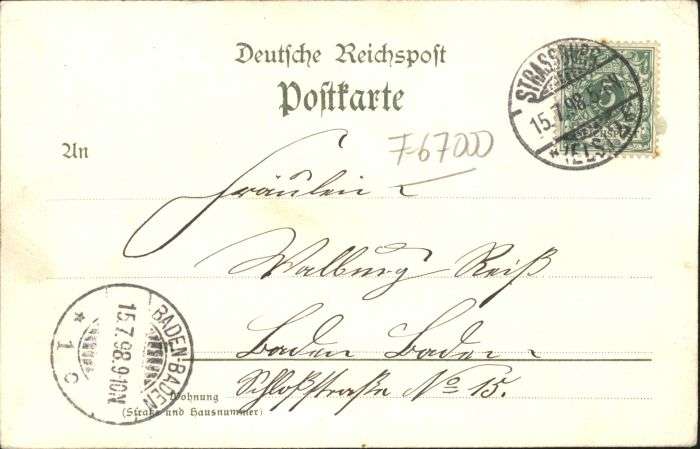 Deutsche Reichspost
Postkarte
STRASSBURG
15.7.98.5-6N
(ELSASS)
5
An
F-67000
Fräulein
Walburg Reiß
Baden Baden
Schloßstraße No 15.
Wohnung
(Straße und Hausnummer)
BADEN-BADEN
15.7.98.9-10N
* 1 c